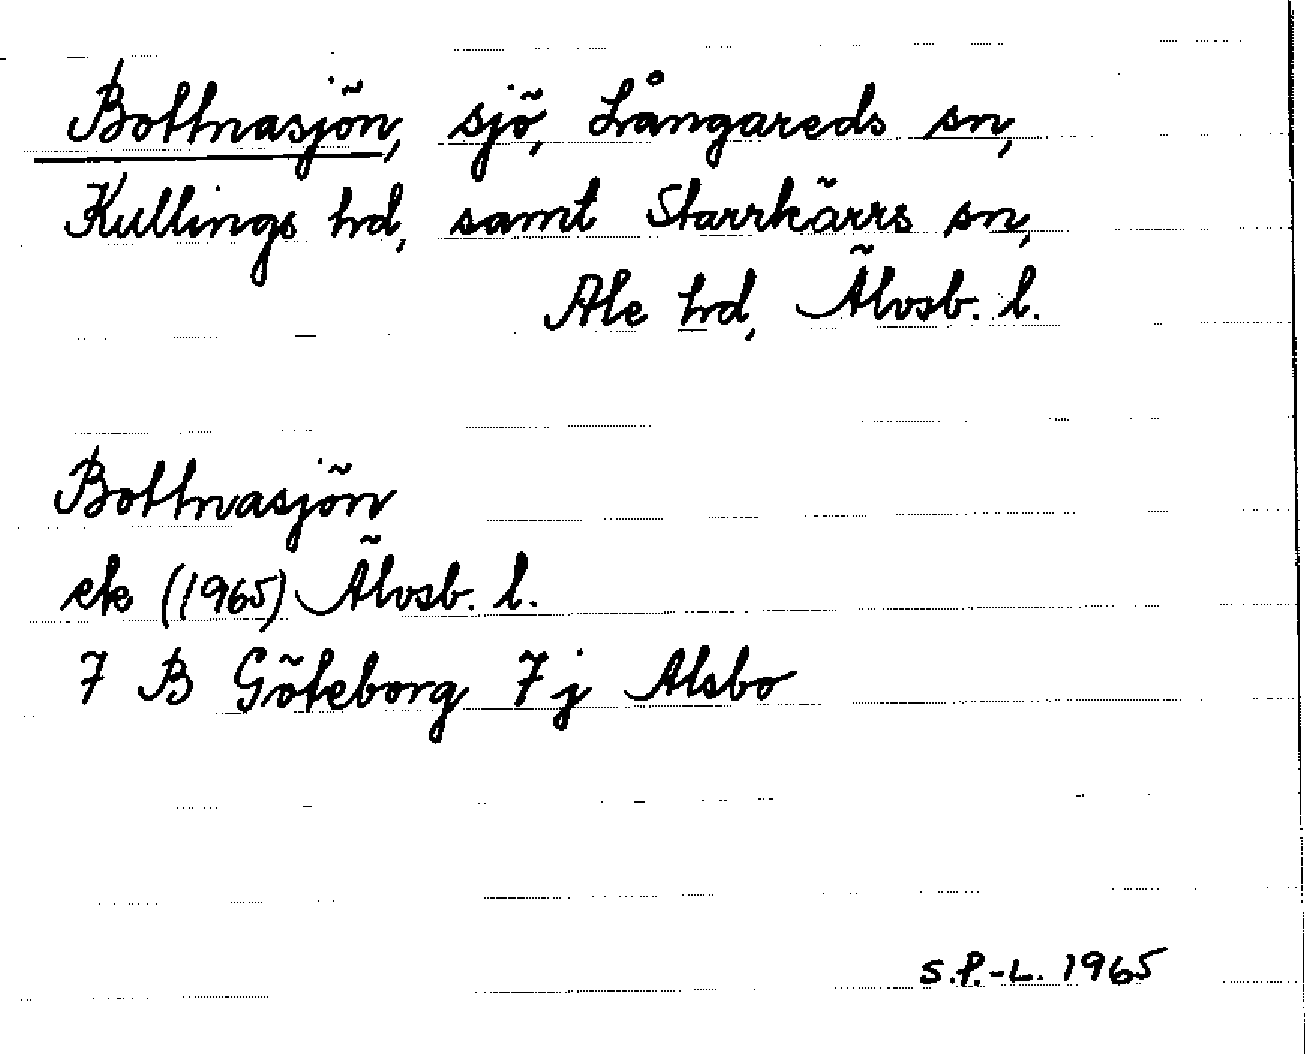 Bottnasjön, sjö, Långareds sn,
Kullings hd, samt Starrkärrs sn,
Ale hd, Älvsb. l.
Bottnasjön
ek (1965) Älvsb. l.
7 B Göteborg 7 j Alsbo
S.P.-L. 1965